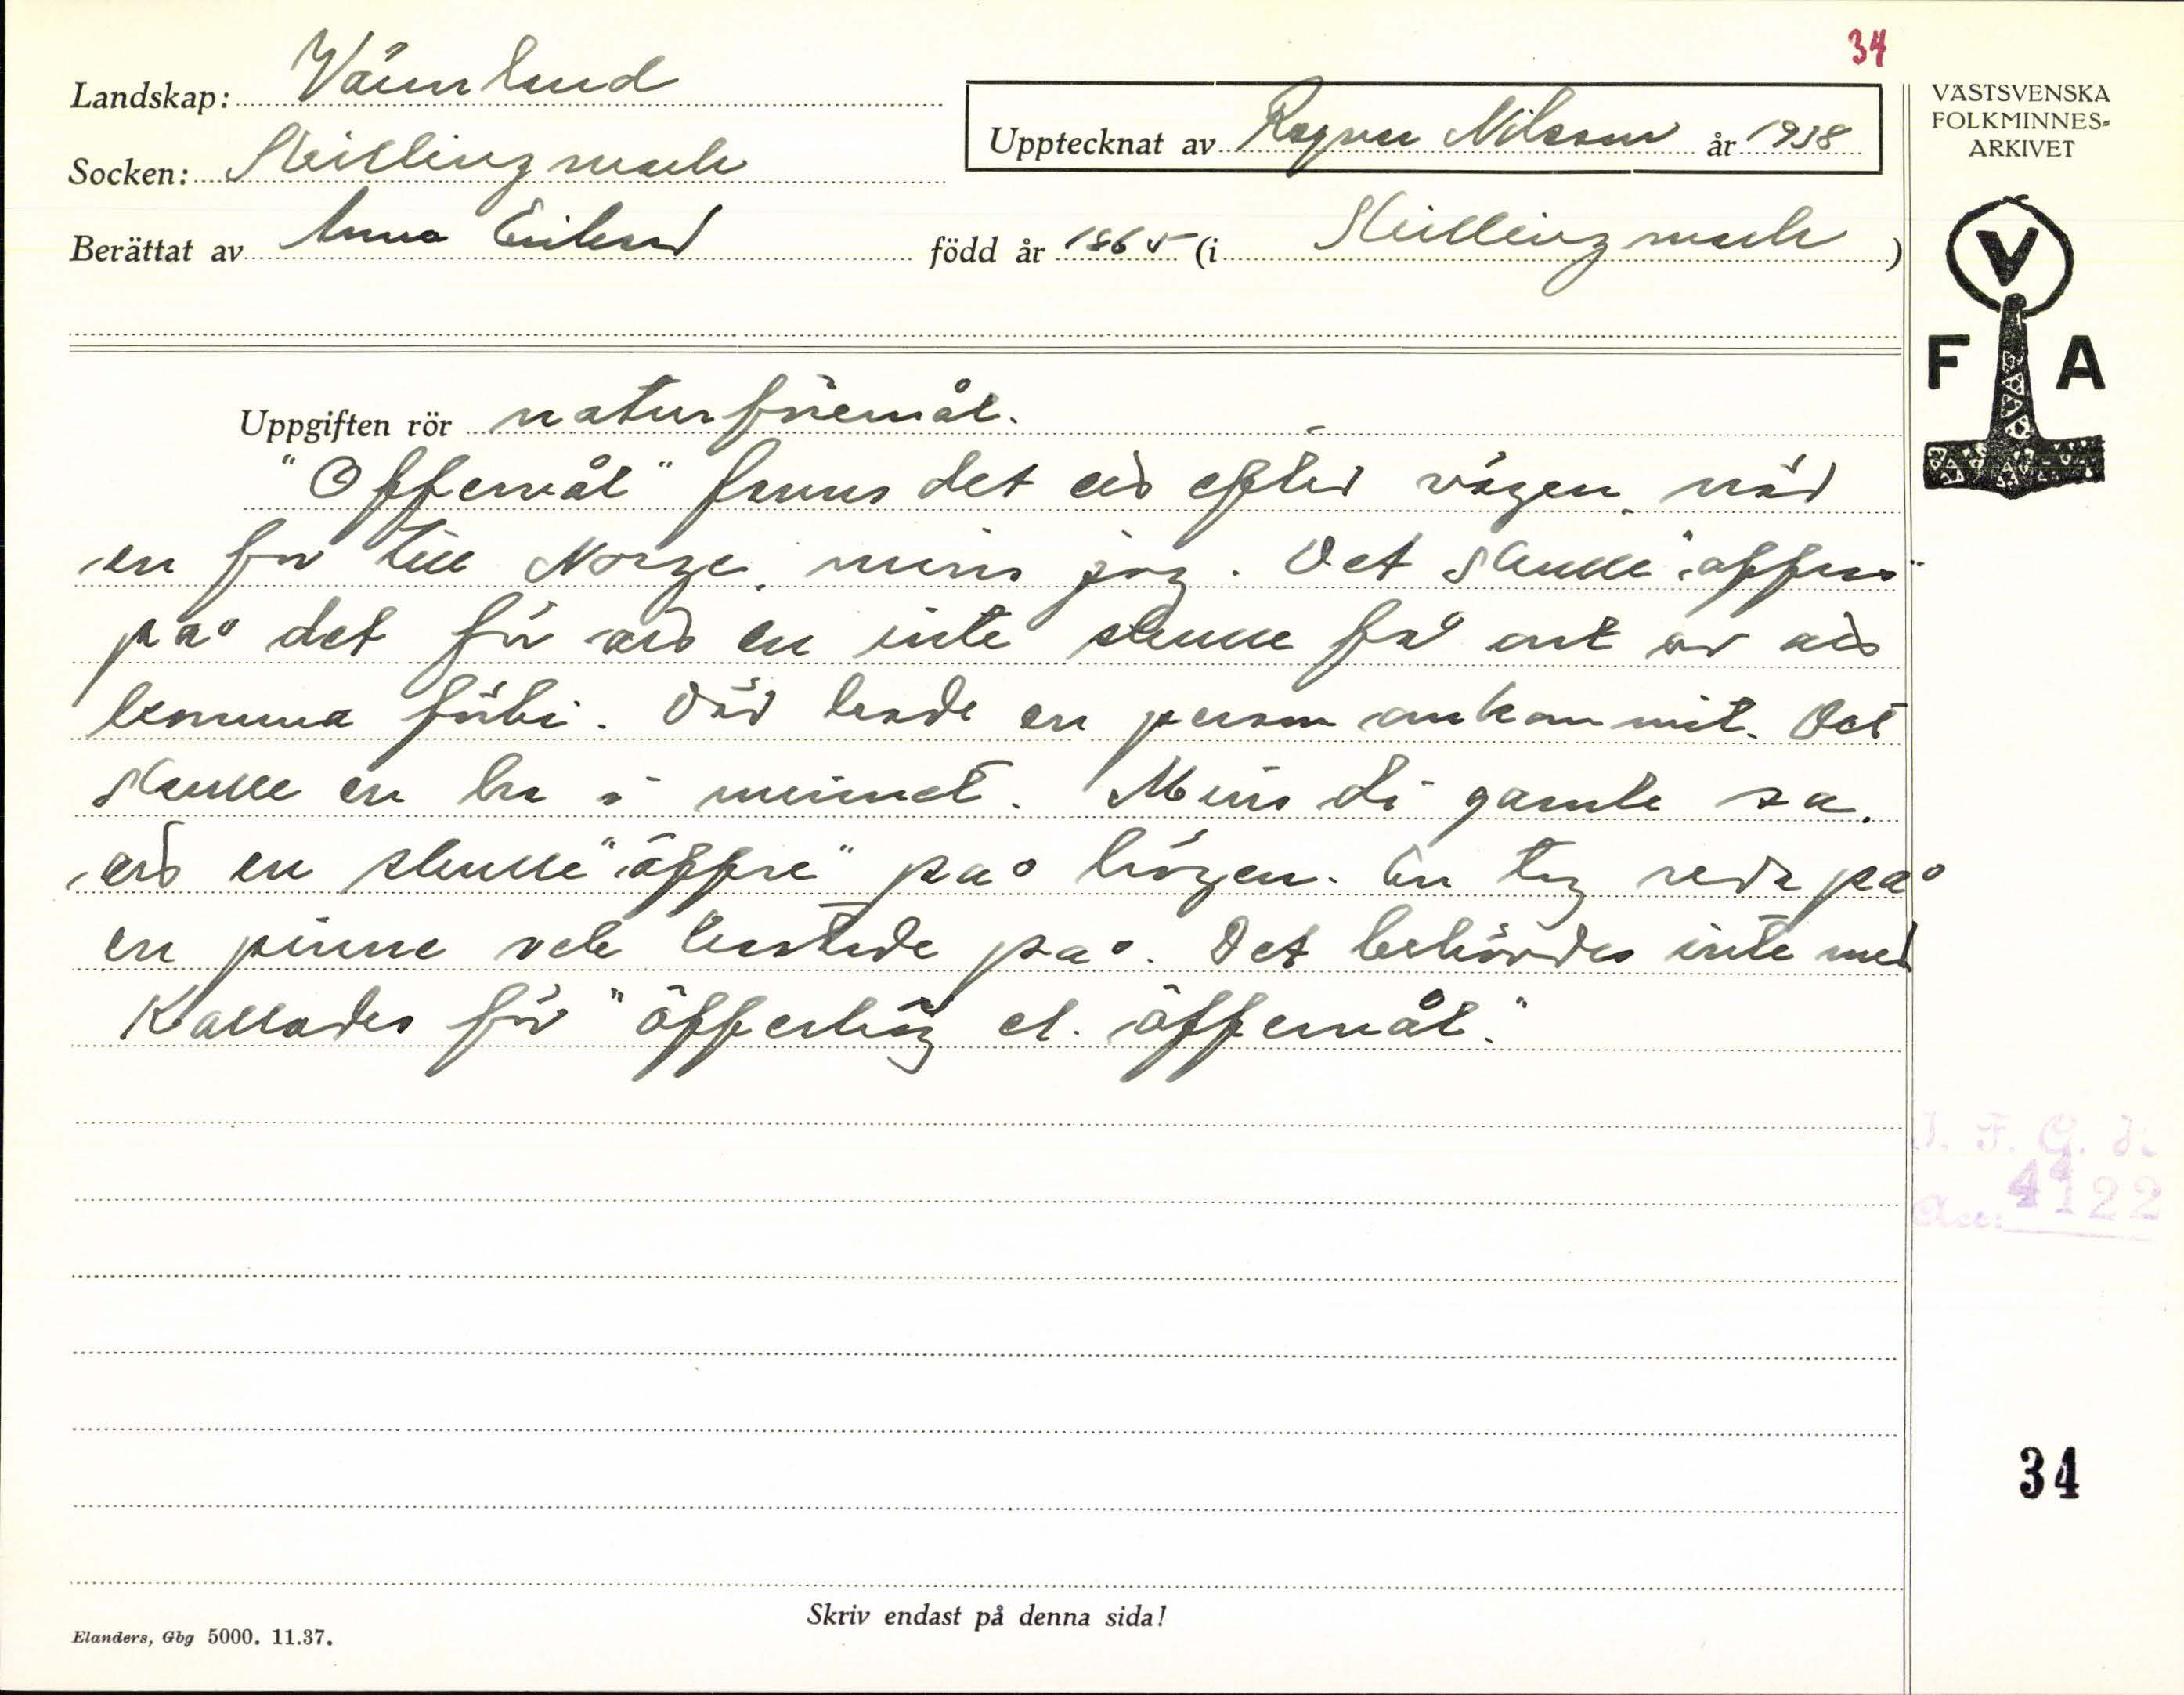 34
Landskap: Värmland
Socken: Skillingmark
Upptecknat av Ragnar Nilsson år 1938
Berättat av Anna Eriksson född år 1865 (i Skillingmark)
VÄSTSVENSKA
FOLKMINNES-
ARKIVET
V
F A
Uppgiften rör naturföremål.
"Offermål" fanns det efter vägen när
en for till Norge, minns jag. Det skulle "offras"
på det för en inte skulle få ont av
komma förbi. Där hade en person omkommit. Det
skulle en ha i minnet. Minns di gamle sa,
en skulle "öffre" på högen. En tog reda på
en pinne och kastade på. Det behövdes inte mer
Kallades för "öfferhög el. öffermål."
34
Skriv endast på denna sida!
Elanders, Gbg 5000. 11.37.